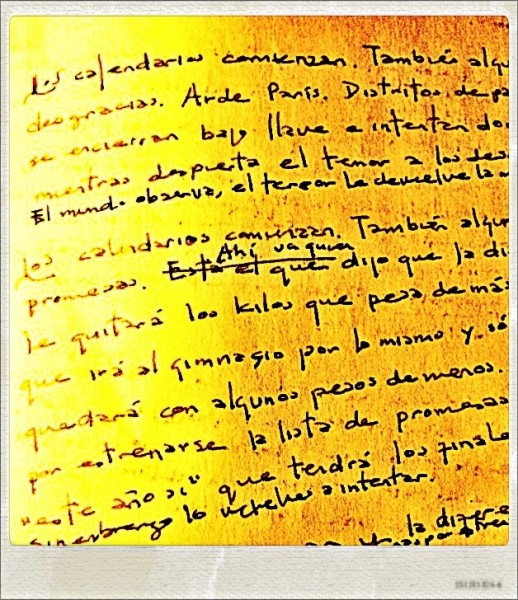 Los calendarios comienzan. También algu
desgracias. Arde París. Distritos de pa
se encierran bajo llave e intentan do
mientras despierta el temor a los des
El mundo observa, el terror le devuelve la
Los calendarios comienzan. También algu
Ahí va quien
promesas. Está el que dijo que la di
le quitará los kilos que pesa de más
que irá al gimnasio por lo mismo y só
quedará con algunos pesos de menos.
por estrenarse la lista de promesas
"este año sí" que tendrá los finale
sin embargo lo vuelve a intentar.
la